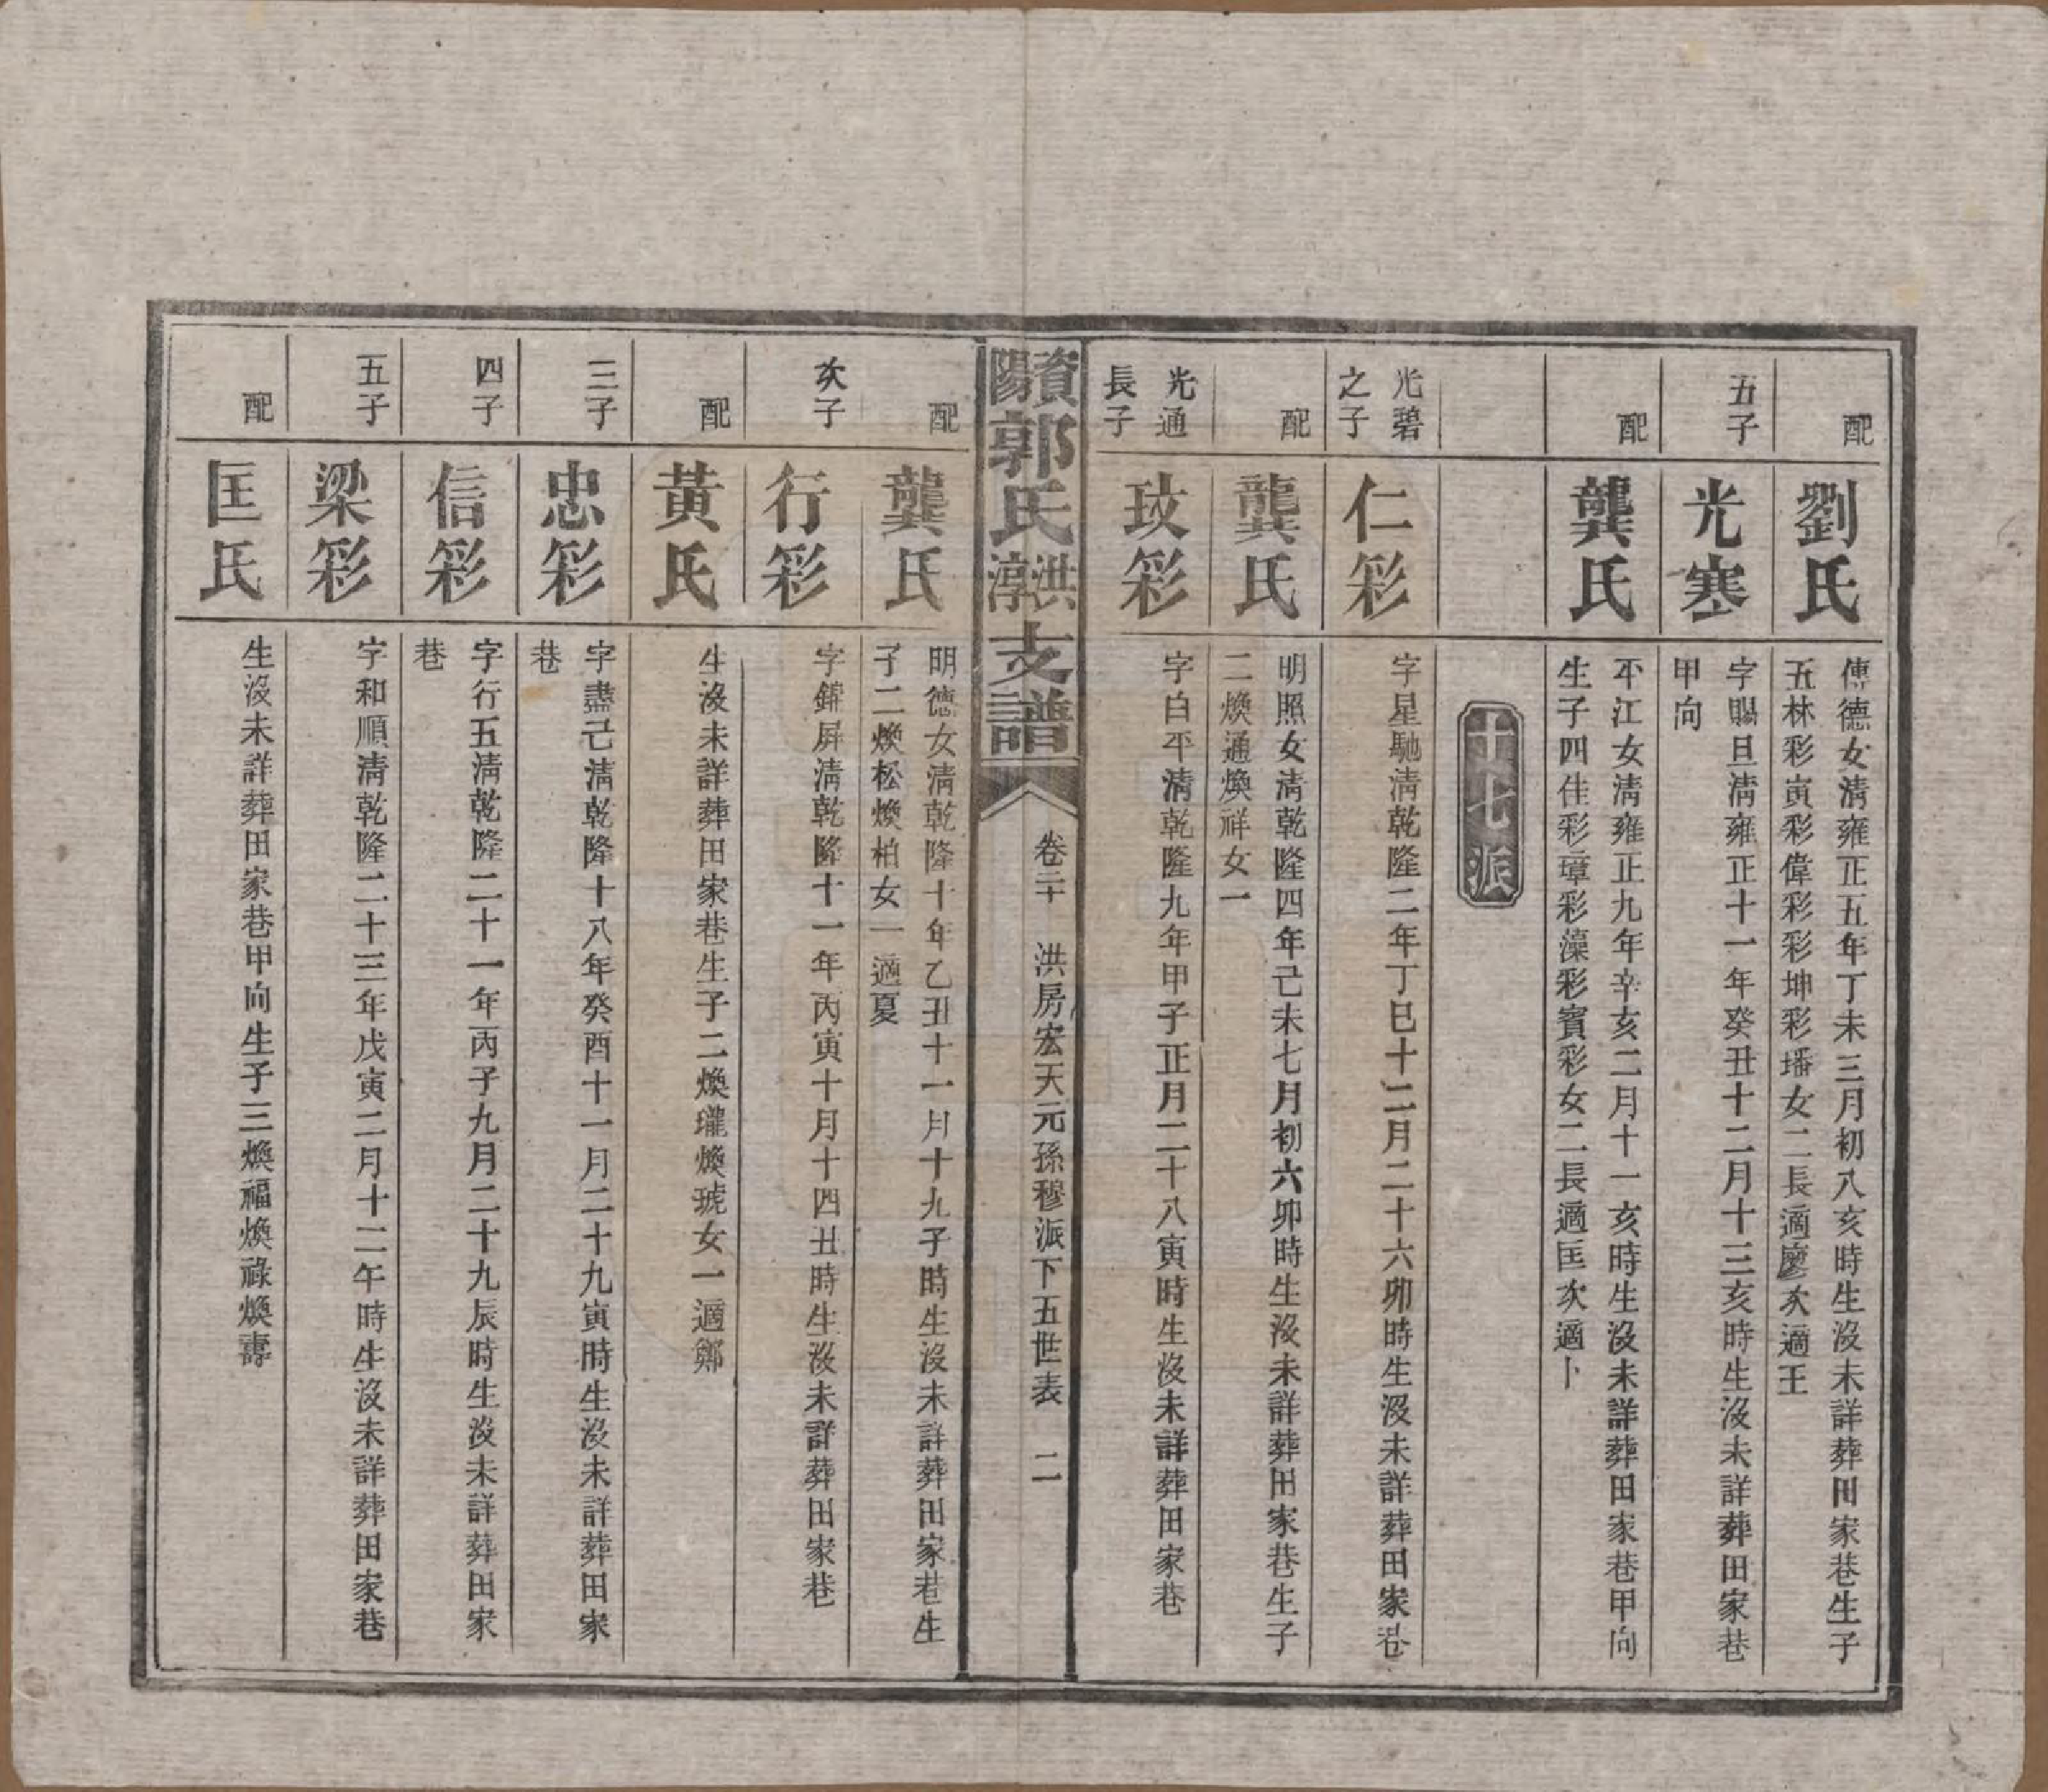 配
劉氏
傳德女淸雍正五年丁未三月初八亥時生沒未詳葬田家巷生子
五林彩寅彩偉彩彩坤彩璠女二長適廖次適王
五子
光寒
字賜旦淸雍正十一年癸丑十二月十三亥時生沒未詳葬田家巷
甲向
配
龔氏
平江女淸雍正九年辛亥二月十一亥時生沒未詳葬田家巷甲向
生子四佳彩璋彩藻彩賓彩女二長適匡次適卜
十七派
光碧
之子
仁彩
字星馳淸乾隆二年丁巳十二月二十六卯時生沒未詳葬田家巷
配
龔氏
明照女淸乾隆四年己未七月初六卯時生沒未詳葬田家巷生子
二煥通煥祥女一
光通
長子
玟彩
字白平淸乾隆九年甲子正月二十八寅時生沒未詳葬田家巷
資陽郭氏洪淳支譜
卷二十 洪房宏天元孫穆派下五世表 二
配
龔氏
明德女淸乾隆十年乙丑十一月十九子時生沒未詳葬田家巷生
子二煥松煥柏女一適夏
次子
行彩
字錦屏淸乾隆十一年丙寅十月十四丑時生沒未詳葬田家巷
配
黃氏
生沒未詳葬田家巷生子二煥瓏煥琥女一適鄭
三子
忠彩
字盡己淸乾隆十八年癸酉十一月二十九寅時生沒未詳葬田家
巷
四子
信彩
字行五淸乾隆二十一年丙子九月二十九辰時生沒未詳葬田家
巷
五子
梁彩
字和順淸乾隆二十三年戊寅二月十二午時生沒未詳葬田家巷
配
匡氏
生沒未詳葬田家巷甲向生子三煥福煥祿煥壽